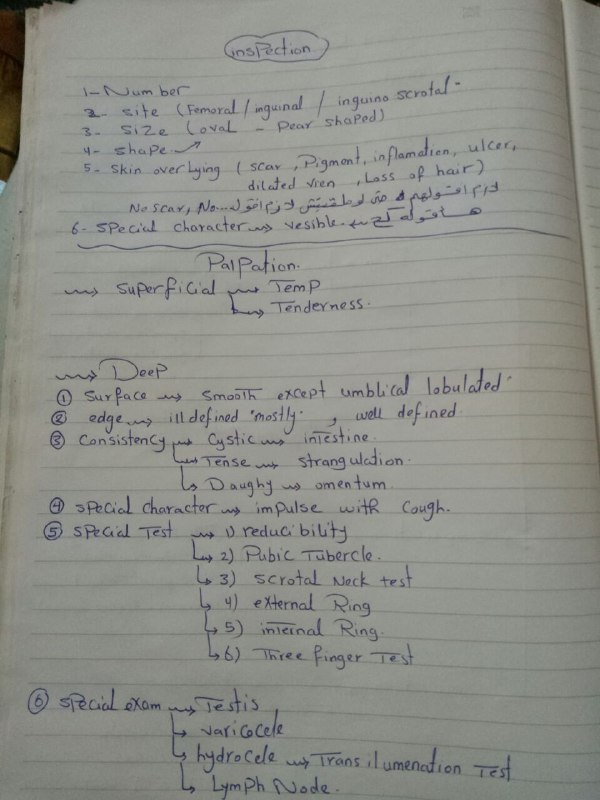 insPection
1- Number
2- site (Femoral / inguinal / inguino scrotal -
3- Size (oval - Pear shaped)
4- shape
5- Skin overlying (scar, Pigment, inflamation, ulcer,
dilated vien, Loss of hair)
No scar, No... لازم اقولهم حتى لو ملقتش لازم اقوله
6- special character vesible. هاقوله كح
Palpation.
superficial Temp
Tenderness.
Deep
① Surface smooth except umblical lobulated
② edge ill defined "mostly", well defined.
③ Consistency Cystic intestine.
Tense strangulation.
Daughy omentum.
④ special character impulse with Cough.
⑤ special Test 1) reducibility
2) Pubic Tubercle.
3) Scrotal Neck test
4) external Ring
5) internal Ring.
6) Three finger Test
⑥ special exam Testis
varicocele
hydrocele Trans ilumenation Test
Lymph Node.